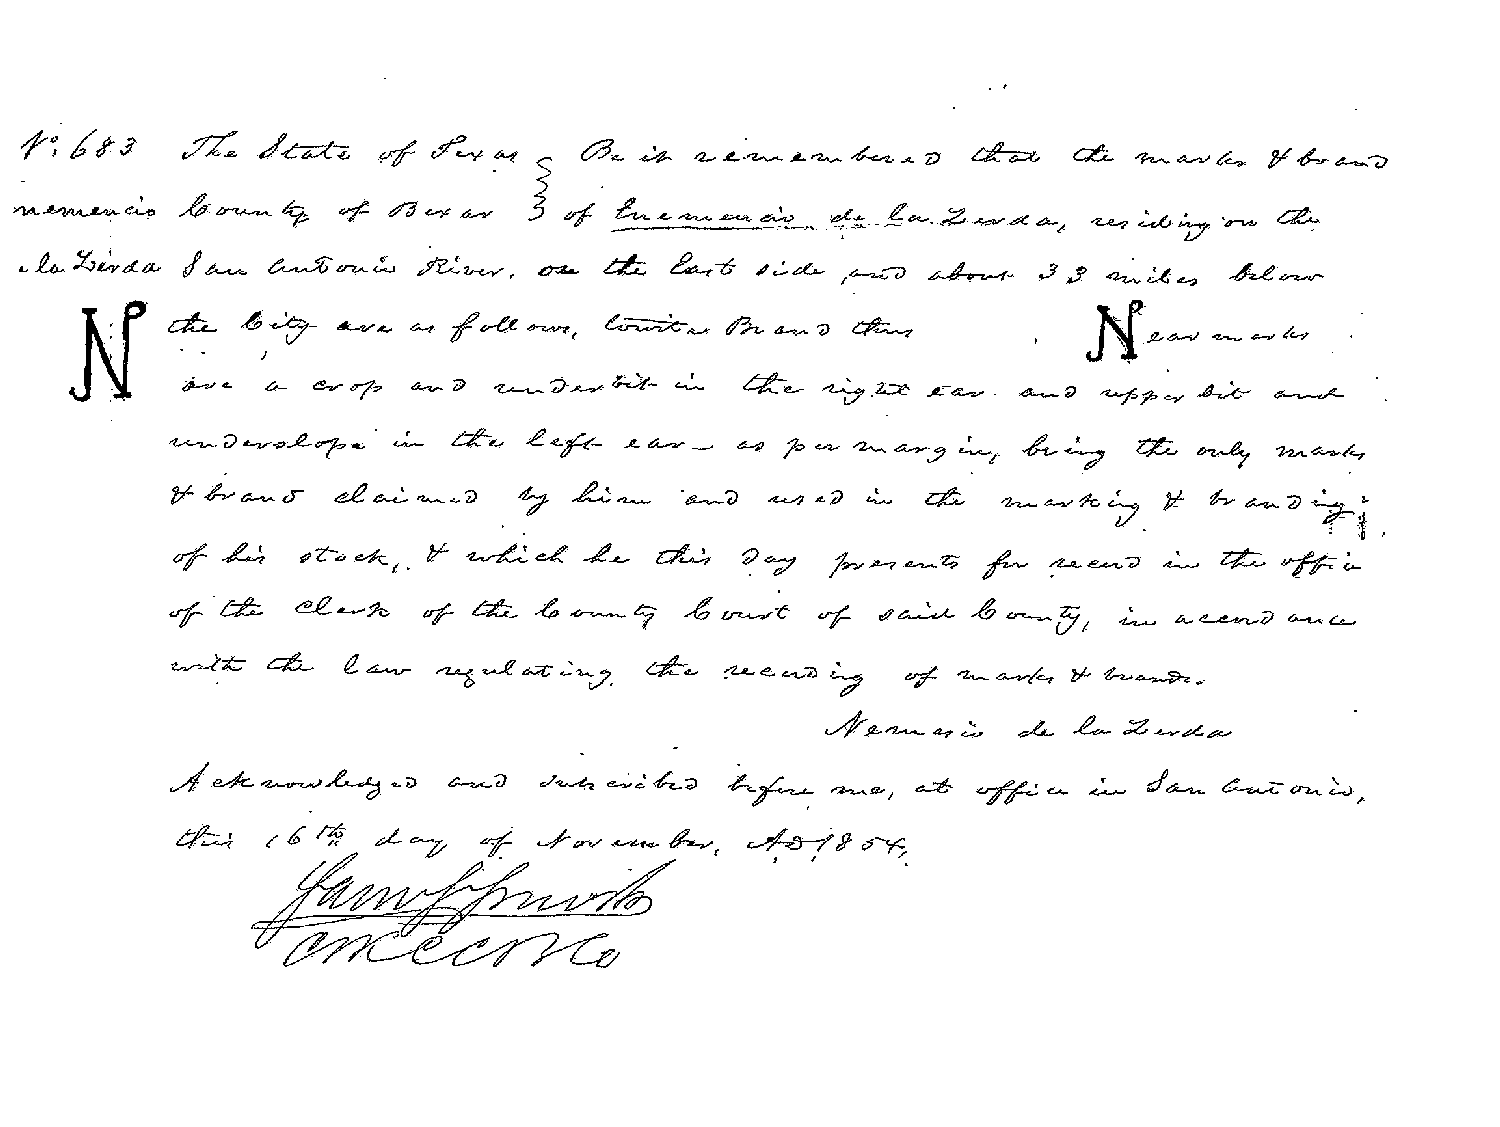 No. 683 The State of Texas } Be it remembered that the marks & brand
nemencio County of Bexar } of Inemencio de la Zerda, residing on the
de la Zerda San Antonio River, on the East side and about 33 miles below
N the City are as follows, towit: Brand thus N ear marks
are a crop and underbit in the right ear and upper bit and
underslope in the left ear — as per margin, being the only marks
& brand claimed by him and used in the marking & branding
of his stock, & which he this day presents for record in the office
of the Clerk of the County Court of said County, in accordance
with the law regulating the recording of marks & brands.
Nemesio de la Zerda
Acknowledged and subscribed before me, at office in San Antonio,
this 16th day of November, AD 1854,
CKCCBCo